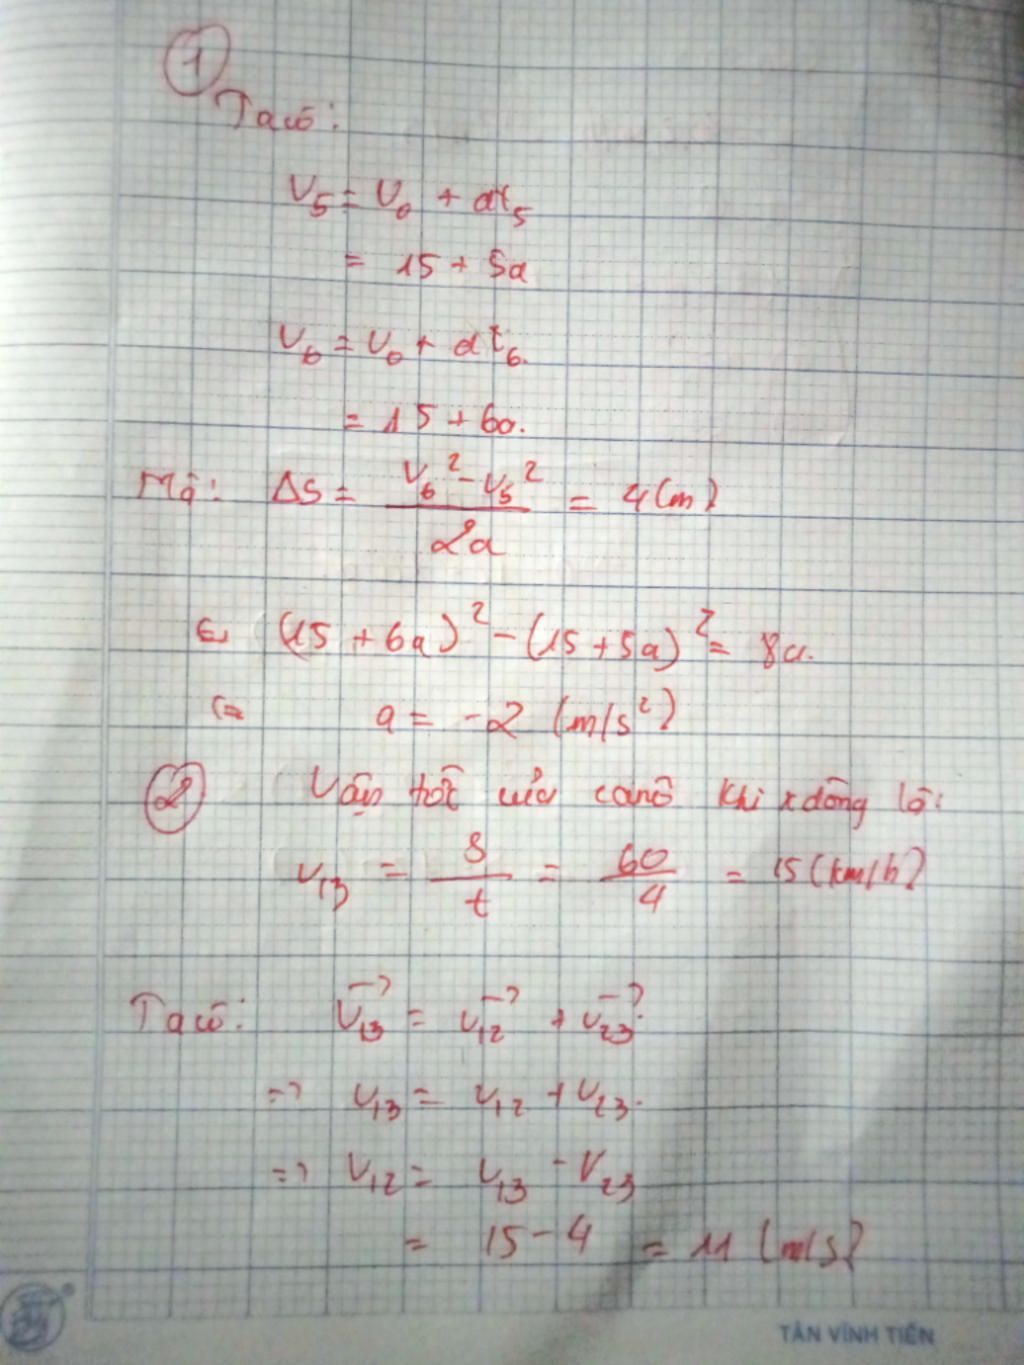 1
Ta có:
V₅ = V₀ + at₅
= 15 + 5a
V₆ = V₀ + at₆.
= 15 + 6a.
Mà: ΔS = (V₆² - V₅²) / 2a = 4 (m)
⇔ (15 + 6a)² - (15 + 5a)² = 8a.
⇔ a = -2 (m/s²)
2 Vận tốc của canô khi xdòng là:
V₁₃ = S/t = 60/4 = 15 (km/h)
Ta có: V₁₃→ = V₁₂→ + V₂₃→.
=> V₁₃ = V₁₂ + V₂₃.
=> V₁₂ = V₁₃ - V₂₃
= 15 - 4 = 11 (m/s)
TÂN VĨNH TIẾN